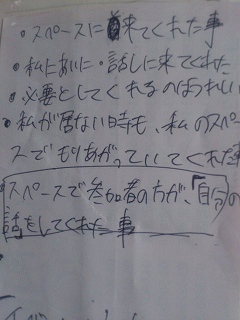 ・スペースに来てくれた事
・私にあいに・話しに来てくれた
・必要としてくれるのはうれしい
・私が居ない時も、私のスペー
スでもりあがっていてくれた事
スペースで参加者の方が、「自分の
話をしてくれた事